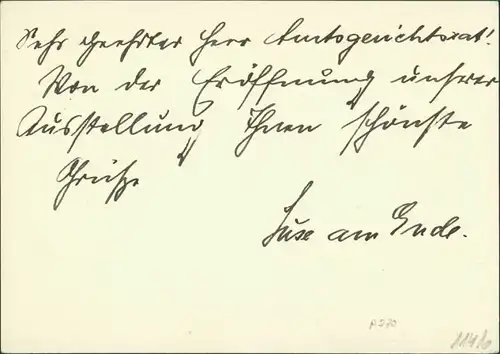 Sehr geehrter Herr Amtsgerichtsrat!
Von der Eröffnung unsrer
Ausstellung Ihnen schönste
Grüße
Suse am Ende.
P270
1146